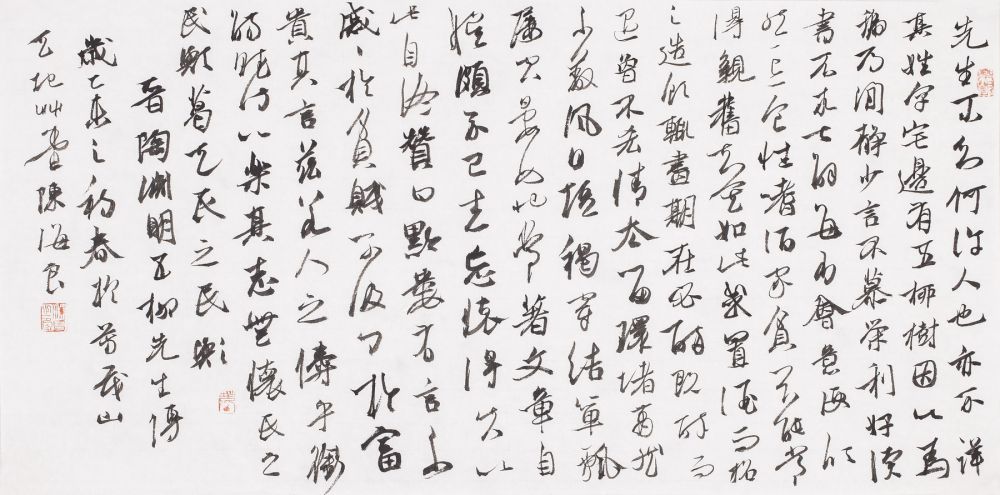 先生不知何許人也亦不詳
其姓字宅邊有五柳樹因以為
號焉閒靜少言不慕榮利好讀
書不求甚解每有會意便欣
然忘食性嗜酒家貧不能常
得親舊知其如此或置酒而招
之造飲輒盡期在必醉既醉而
退曾不吝情去留環堵蕭然
不蔽風日短褐穿結簞瓢
屢空晏如也常著文章自
娛頗示己志忘懷得失以
此自終贊曰黔婁有言不
戚戚於貧賤不汲汲於富
貴其言茲若人之儔乎銜
觴賦詩以樂其志無懷氏之
民歟葛天氏之民歟
晉陶淵明五柳先生傳
歲乙之初春於茂山
天地艸堂陳海良